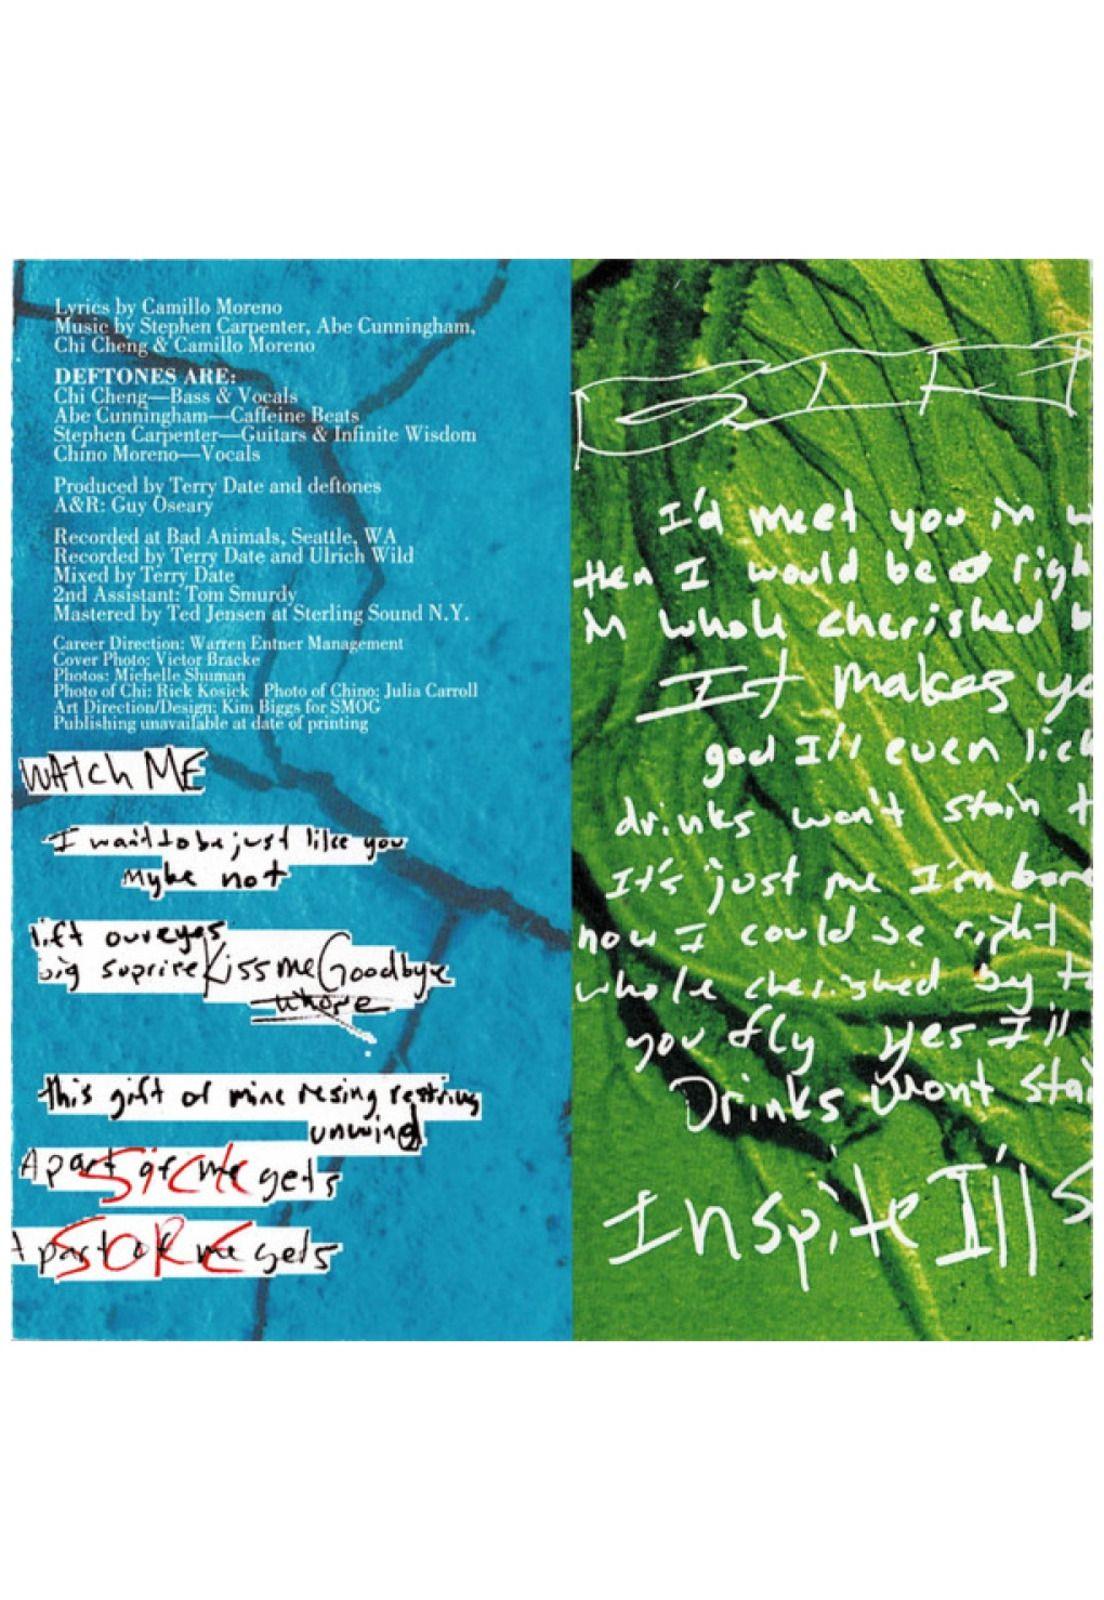 Lyrics by Camillo Moreno
Music by Stephen Carpenter, Abe Cunningham,
Chi Cheng & Camillo Moreno
DEFTONES ARE:
Chi Cheng—Bass & Vocals
Abe Cunningham—Caffeine Beats
Stephen Carpenter—Guitars & Infinite Wisdom
Chino Moreno—Vocals
Produced by Terry Date and deftones
A&R: Guy Oseary
Recorded at Bad Animals, Seattle, WA
Recorded by Terry Date and Ulrich Wild
Mixed by Terry Date
2nd Assistant: Tom Smurdy
Mastered by Ted Jensen at Sterling Sound N.Y.
Career Direction: Warren Entner Management
Cover Photo: Victor Bracke
Photos: Michelle Shuman
Photo of Chi: Rick Kosick Photo of Chino: Julia Carroll
Art Direction/Design: Kim Biggs for SMOG
Publishing unavailable at date of printing
WAtch ME
I want to be just like you
mybe not
lift oureyes
big suprire Kiss me Goodbye
whore
this gift of mine resing restring
unwind
A part of me gets
SICK
A part of me gets
SORE
I'd meet you in
then I would be
whole cherished
It makes
god I'll even lick
drinks won't stain
It's just me I'm
now I could be right
whole cherished by
you fly yes I'll
Drinks wont
Inspite I'll